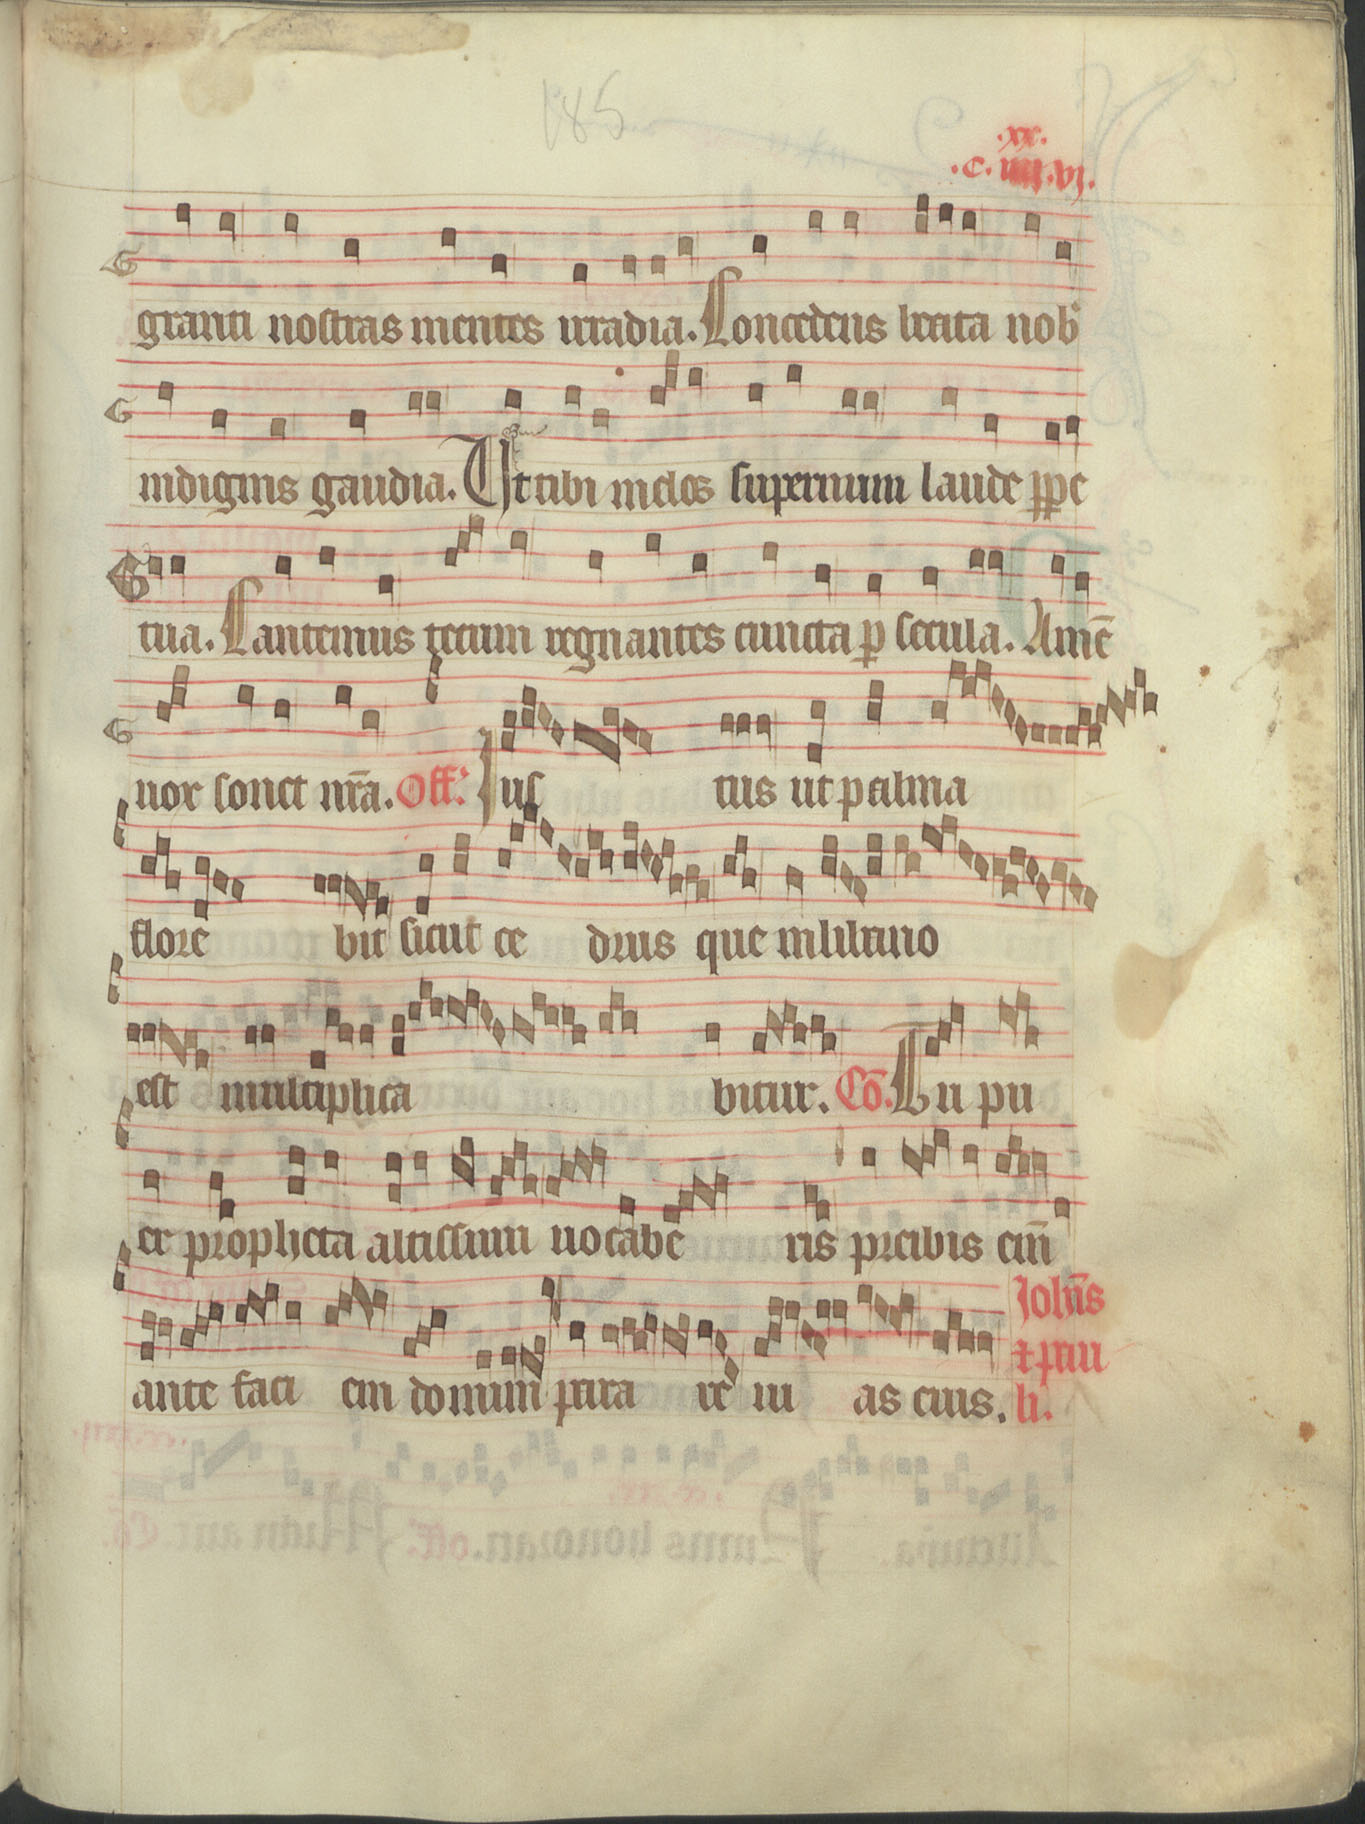 185
.xx.
.c. iiii .vj.
granti nostras mentes irradia. Concedens beata nob
indignis gaudia. Ut tibi melos supernum laude ppe
tua. Cantemus tecum regnantes cuncta p secula. Amē
nor sonet nr̄a. Off. Jus tus ut palma
flore bit sicut ce drus que in libano
est multiplica bitur. Cō. Tu pu
er propheta altissimi uocabe ris preibis eni̅
ante faci em domini para re ui as eius.
Joh̅is
et pau
li.